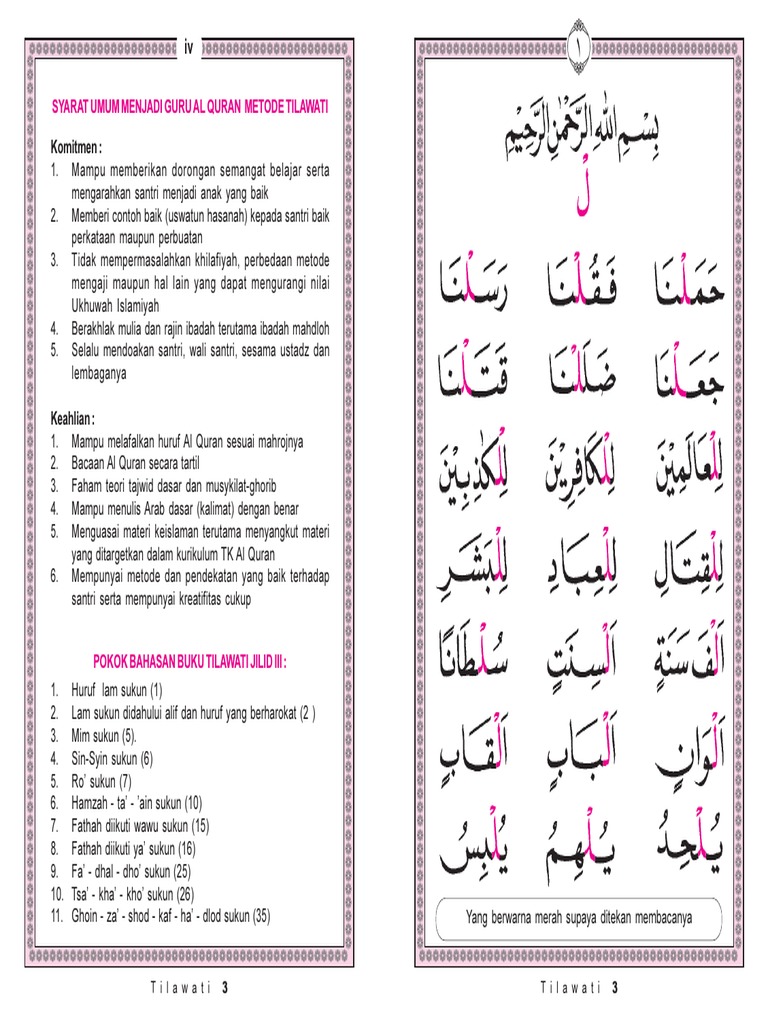 iv
SYARAT UMUM MENJADI GURU AL QURAN METODE TILAWATI
Komitmen :
1. Mampu memberikan dorongan semangat belajar serta
mengarahkan santri menjadi anak yang baik
2. Memberi contoh baik (uswatun hasanah) kepada santri baik
perkataan maupun perbuatan
3. Tidak mempermasalahkan khilafiyah, perbedaan metode
mengaji maupun hal lain yang dapat mengurangi nilai
Ukhuwah Islamiyah
4. Berakhlak mulia dan rajin ibadah terutama ibadah mahdloh
5. Selalu mendoakan santri, wali santri, sesama ustadz dan
lembaganya
Keahlian :
1. Mampu melafalkan huruf Al Quran sesuai mahrojnya
2. Bacaan Al Quran secara tartil
3. Faham teori tajwid dasar dan musykilat-ghorib
4. Mampu menulis Arab dasar (kalimat) dengan benar
5. Menguasai materi keislaman terutama menyangkut materi
yang ditargetkan dalam kurikulum TK Al Quran
6. Mempunyai metode dan pendekatan yang baik terhadap
santri serta mempunyai kreatifitas cukup
POKOK BAHASAN BUKU TILAWATI JILID III :
1. Huruf lam sukun (1)
2. Lam sukun didahului alif dan huruf yang berharokat (2 )
3. Mim sukun (5).
4. Sin-Syin sukun (6)
5. Ro’ sukun (7)
6. Hamzah - ta’ - ’ain sukun (10)
7. Fathah diikuti wawu sukun (15)
8. Fathah diikuti ya’ sukun (16)
9. Fa’ - dhal - dho’ sukun (25)
10. Tsa’ - kha’ - kho’ sukun (26)
11. Ghoin - za’ - shod - kaf - ha’ - dlod sukun (35)
Tilawati 3
١
بِسْمِ اللّٰهِ الرَّحْمٰنِ الرَّحِيْمِ
لْ
حَمَلْنَا فَقُلْنَا رَسَلْنَا
جَعَلْنَا ضَلَلْنَا قَتَلْنَا
لِلْعَالَمِيْنَ لِلْكَافِرِيْنَ لِلْكٰذِبِيْنَ
لِلْقِتَالِ لِلْعِبَادِ لِلْبَشَرِ
اَلْفَ سَنَةٍ اَلْسِنَتٍ سُلْطَانًا
اَلْوَانٍ اَلْبَابٍ اَلْقَابٍ
يُلْحِدُ يُلْهِمُ يُلْبِسُ
Yang berwarna merah supaya ditekan membacanya
Tilawati 3